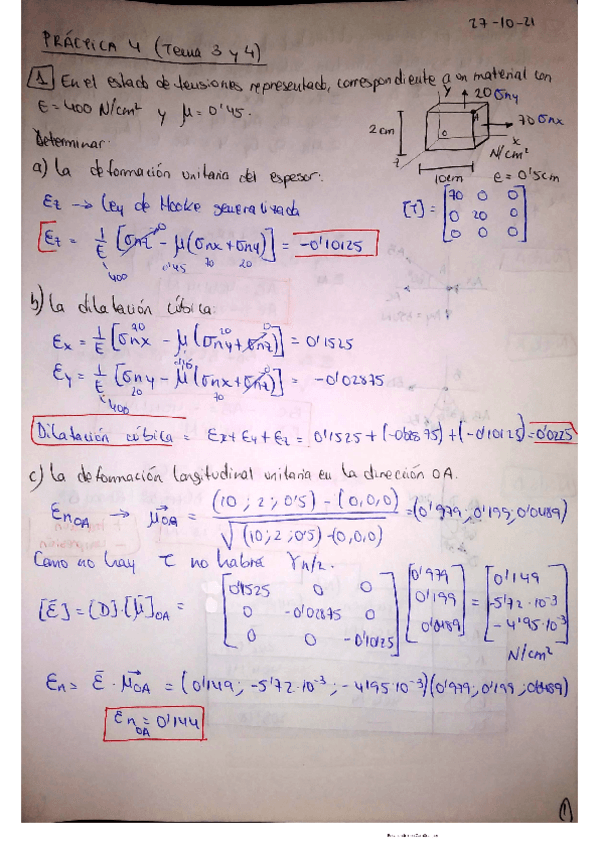 27-10-21
PRÁCTICA 4 (Tema 3 y 4)
1. En el estado de tensiones representado, correspondiente a un material con
E = 400 N/cm² y μ = 0'45.
y 20 σny
A
70 σnx
O
x
z
2cm
10cm
N/cm²
e = 0'5cm
Determinar:
a) La deformación unitaria del espesor:
[T] = [70 0 0
0 20 0
0 0 0]
εz → Ley de Hooke generalizada
εz = 1/E [σnz - μ(σnx + σny)] = -0'10125
0
400 0'45 70 20
b) La dilatación cúbica
εx = 1/E [σnx - μ(σny + σnz)] = 0'1525
70 20 0
εy = 1/E [σny - μ(σnx + σnz)] = -0'02875
400 20 70 0
Dilatación cúbica = εx + εy + εz = 0'1525 + (-0'02875) + (-0'10125) = 0'0225
c) La deformación longitudinal unitaria en la dirección OA.
εnOA → μOA = (10; 2; 0'5) - (0,0,0) / √(10; 2; 0'5) - (0,0,0) = (0'979; 0'199; 0'0489)
Como no hay τ no habrá γn/2.
[ε] = [D]·[μ]OA = [0'1525 0 0
0 -0'02875 0
0 0 -0'10125] [0'979
0'199
0'0489] = [0'149
-5'72·10⁻³
-4'95·10⁻³]
N/cm²
εn = ε · μOA = (0'149; -5'72·10⁻³; -4'95·10⁻³)(0'979; 0'199; 0'0489)
εnOA = 0'144
1